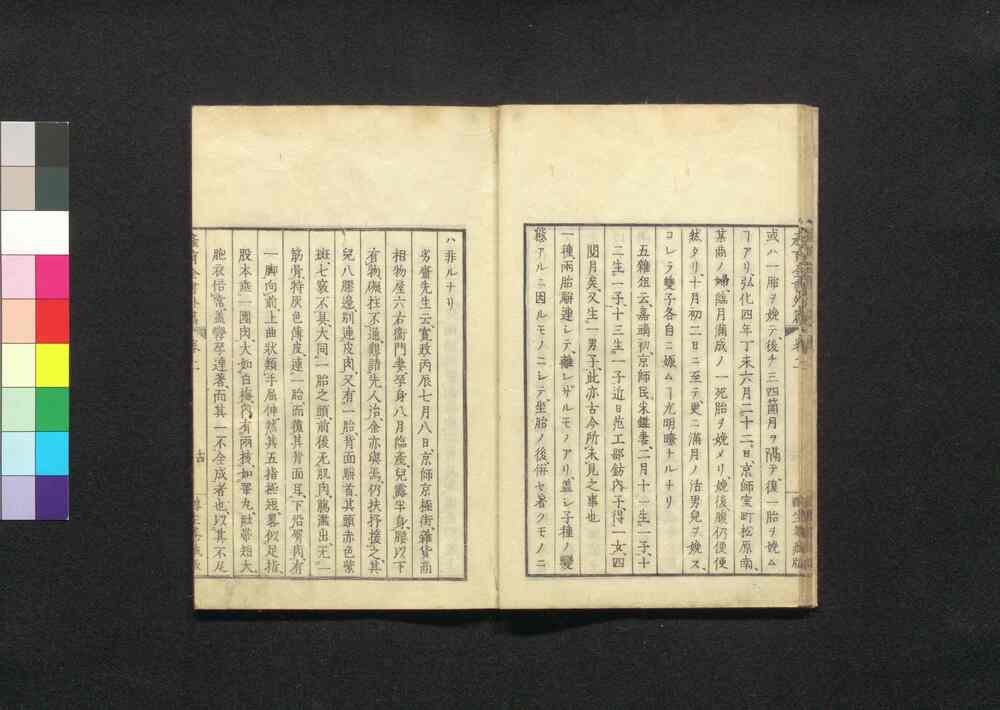 或ハ一胎ヲ娩テ後チ三四箇月ヲ隔テ復一胎ヲ娩ム
ヿアリ弘化四年丁未六月二十二日京師室町松原南
某商ノ婦臨月満成ノ一死胎ヲ娩メリ娩後腹仍便便
然タリ十月初二日ニ至テ更ニ満月ノ活男児ヲ娩ス
コレラ雙子各自ニ娠ムヿ尤明瞭ナルナリ
五雜俎云嘉靖初京師民米鑑妻二月十一生一子十
二生一子十三生一子近日范工部鈁內子得一女四
閲月矣又生一男子此亦古今所未見之事也
一種兩胎駢連シテ離レザルモノアリ蓋シ子種ノ變
態アルニ因ルモノニシテ坐胎ノ後併セ着クモノニ
ハ非ルナリ
劣齋先生云寛政丙辰七月八日京師京極街雜貨商
相物屋六右衞門妻孕身八月臨產兒露半身腰以下
有物礙拄不通觀請先人治余亦與焉仍扶抒援之其
兒八髎邊別連皮肉又有一胎背面駢首其頭赤色紫
斑七竅不具大同一胎之頭前後无肌肉腸瀉出无一
筋骨特灰色薄皮連一胎而覆其背面耳下沿臀肉有
一脚向前上曲狀類手屈伸然其五指極短畧似足指
股本垂一團肉大如白梅內有兩核如睪丸肚帶短大
胞衣倍常蓋孿孕連著而其一不全成者也以其不足